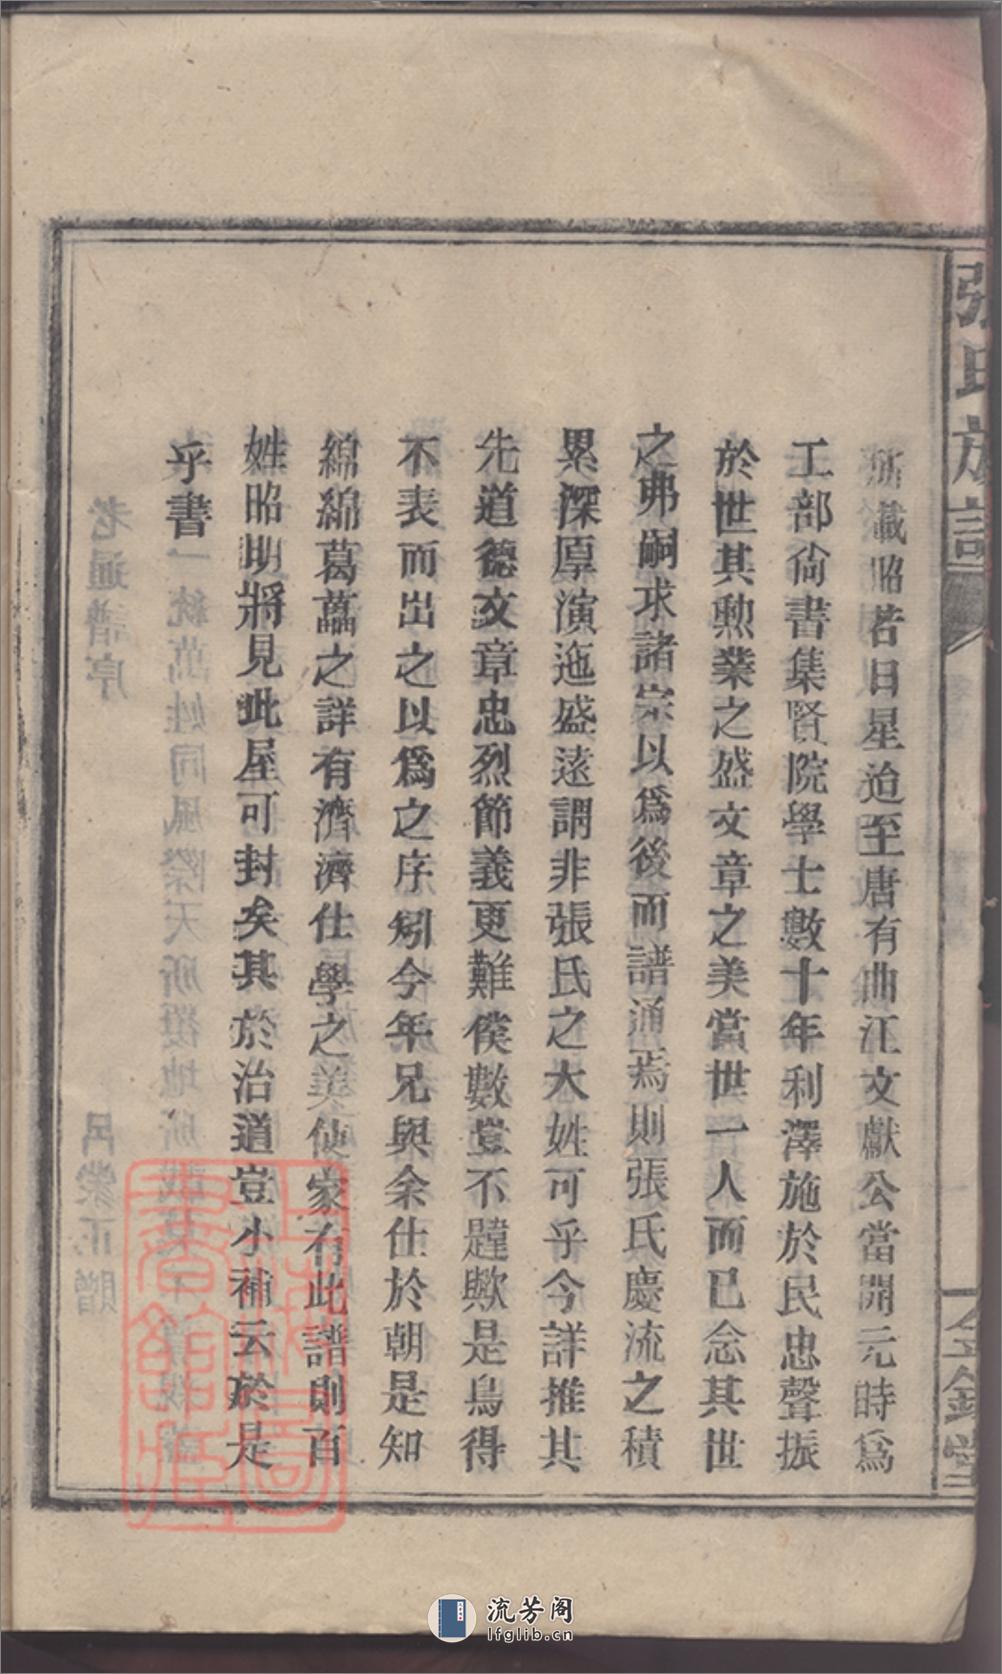 張氏族譜
金鑑堂
所載昭若日星迨至唐有曲江文獻公當開元時爲
工部尙書集賢院學士數十年利澤施於民忠聲振
於世其勲業之盛文章之美當世一人而已念其世
之弗嗣求諸宗以爲後而譜通焉則張氏慶流之積
累深厚演迤盛遠謂非張氏之大姓可乎今詳推其
先道德文章忠烈節義更難僕數豈不韙歟是烏得
不表而出之以爲之序矧今年兄與余仕於朝是知
綿綿葛藟之詳有濟濟仕學之美使家有此譜則百
姓昭明將見此屋可封矣其於治道豈小補云於是
乎書
上海圖書館藏
流芳阁
lfglib.cn